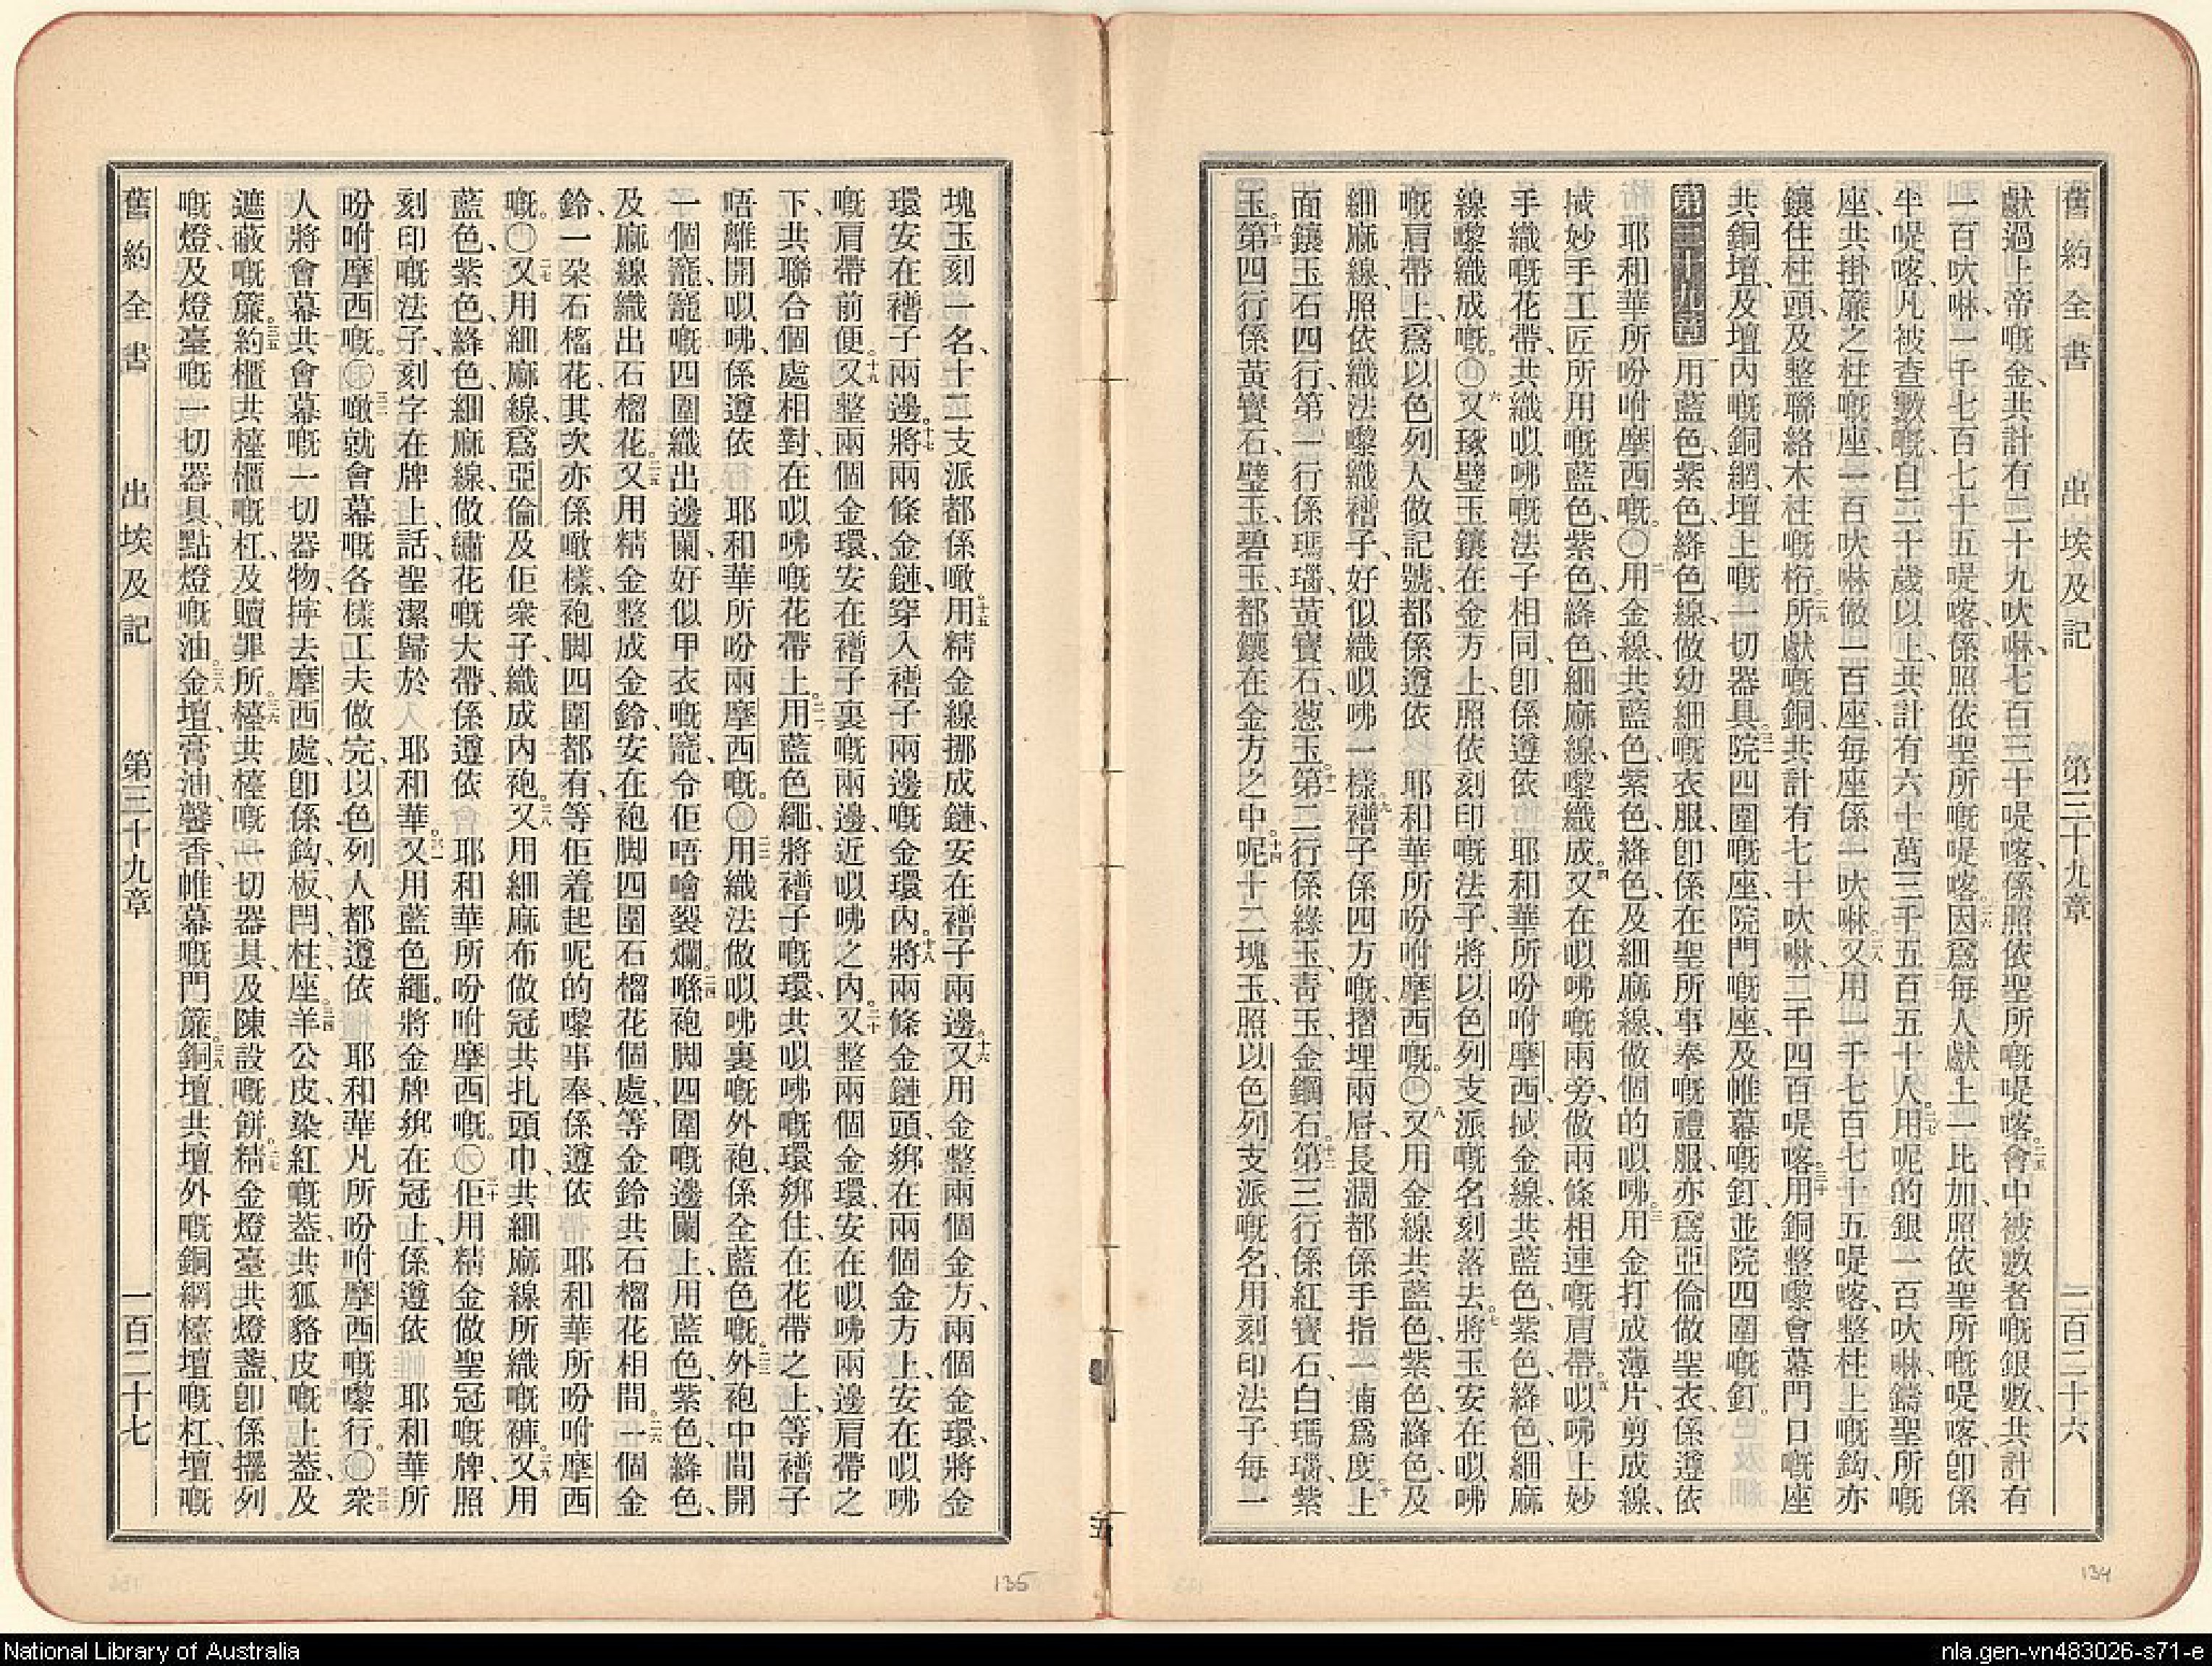 舊約全書　出埃及記　第三十九章　一百二十六
獻過上帝嘅金、共計有二十九吙啉、七百三十㖷喀、係照依聖所嘅㖷喀。二五會中被數者嘅銀數、共計有
一百吙啉、一千七百七十五㖷喀、係照依聖所嘅㖷喀。二六因爲每人獻上一比加、照依聖所嘅㖷喀、卽係
半㖷喀、凡被查數嘅、自二十歲以上、共計有六十萬三千五百五十人。二七用呢的銀一百吙啉、鑄聖所嘅
座、共掛簾之柱嘅座、一百吙啉做一百座、每座係一吙啉。二八又用一千七百七十五㖷喀、整柱上嘅鈎、亦
鑲住柱頭、及整聯絡木柱嘅桁。二九所獻嘅銅、共計有七十吙啉、二千四百㖷喀。三十用銅整嚟會幕門口嘅座
共銅壇、及壇內嘅銅網、壇上嘅一切器具。三一院四圍嘅座、院門嘅座、及帷幕嘅釘、並院四圍嘅釘。
第三十九章　一用藍色、紫色、絳色線、做幼細嘅衣服、卽係在聖所事奉嘅禮服、亦爲亞倫做聖衣、係遵依
耶和華所吩咐摩西嘅。〇二用金線、共藍色、紫色、絳色、及細麻線、做個的㕥咈。三用金打成薄片、剪成線、
掝妙手工匠所用嘅藍色、紫色、絳色、細麻線、嚟織成。四又在㕥咈嘅兩旁、做兩條相連嘅肩帶。五㕥咈上妙
手織嘅花帶、共織㕥咈嘅法子相同、卽係遵依　耶和華所吩咐摩西、掝金線、共藍色、紫色、絳色、細麻
線、嚟織成嘅。〇六又琢璧玉鑲在金方上、照依刻印嘅法子、將以色列支派嘅名刻落去。七將玉安在㕥咈
嘅肩帶上、爲以色列人做記號、都係遵依　耶和華所吩咐摩西嘅。〇八又用金線共藍色、紫色、絳色、及
細麻線、照依織法嚟織襘子、好似織㕥咈一樣。九襘子係四方嘅、摺埋兩層、長濶都係手指一揇爲度。十上
面鑲玉石四行、第一行係瑪瑙、黃寶石、葱玉。十一第二行係綠玉、靑玉、金鋼石。十二第三行係紅寶石、白瑪瑙、紫
玉。十三第四行係黃寶石、璧玉、碧玉、都鑲在金方之中。十四呢十二塊玉、照以色列支派嘅名、用刻印法子、每一
塊玉刻一名、十二支派都係噉。十五用精金線挪成鏈、安在襘子兩邊。十六又用金整兩個金方、兩個金環、將金
環安在襘子兩邊。十七將兩條金鏈、穿入襘子兩邊嘅金環內。十八將兩條金鏈頭、綁在兩個金方上、安在㕥咈
嘅肩帶前便。十九又整兩個金環、安在襘子裏嘅兩邊、近㕥咈之內。二十又整兩個金環、安在㕥咈兩邊肩帶之
下、共聯合個處相對、在㕥咈嘅花帶上。二一用藍色繩、將襘子嘅環、共㕥咈嘅環綁住、在花帶之上、等襘子
唔離開㕥咈、係遵依　耶和華所吩咐摩西嘅。〇二二用織法做㕥咈裏嘅外袍、係全藍色嘅。二三外袍中間開
一個窿、窿嘅四圍織出邊闌、好似甲衣嘅窿、令佢唔噲裂爛。二四喺袍脚四圍嘅邊闌上、用藍色、紫色、絳色、
及麻線織出石榴花。二五又用精金整成金鈴、安在袍脚四圍石榴花個處、等金鈴共石榴花相間。二六一個金
鈴、一朶石榴花、其次亦係噉樣、袍脚四圍都有、等佢着起呢的嚟事奉、係遵依　耶和華所吩咐摩西
嘅。〇二七又用細麻線、爲亞倫及佢衆子、織成內袍。二八又用細麻布做冠共扎頭巾、共細麻線所織嘅褲。二九又用
藍色、紫色、絳色、細麻線、做繡花嘅大帶、係遵依　耶和華所吩咐摩西嘅。〇三十佢用精金做聖冠嘅牌、照
刻印嘅法子、刻字在牌上、話、聖潔歸於　耶和華。三一又用藍色繩。將金牌綁在冠上、係遵依　耶和華所
吩咐摩西嘅。〇三二噉就會幕嘅各樣工夫做完、以色列人都遵依　耶和華凡所吩咐摩西嘅嚟行。〇三三衆
人將會幕、共會幕嘅一切器物、擰去摩西處、卽係鈎、板、閂、柱、座。三四羊公皮染紅嘅葢、共狐貉皮嘅上葢、及
遮蔽嘅簾。三五約櫃共櫃嘅杠、及贖罪所。三六檯共檯嘅一切器具、及陳設嘅餅。三七精金燈臺、共燈盞、卽係擺列
嘅燈、及燈臺嘅一切器具、點燈嘅油。三八金壇、膏油、馨香、帷幕嘅門簾。三九銅壇共壇外嘅銅網、檯壇嘅杠、壇嘅
舊約全書　出埃及記　第三十九章　一百二十七
134
135
National Library of Australia
nla.gen-vn483026-s71-e